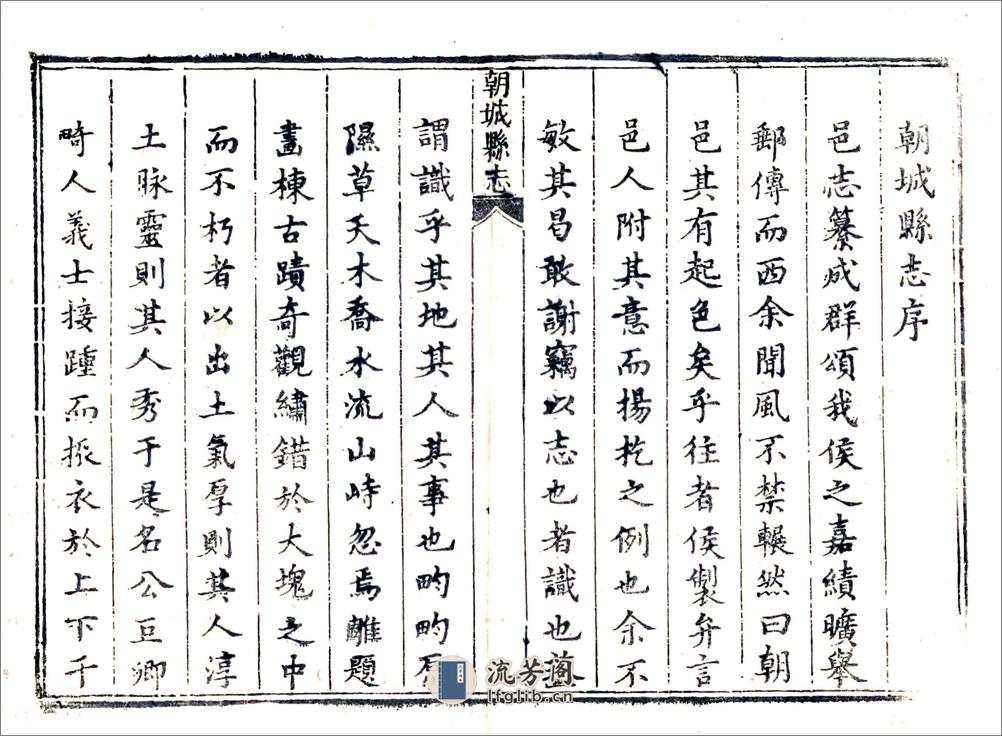 朝城縣志序
邑志纂成群頌我侯之嘉績曠舉
郵傳而西余聞風不禁輾然曰朝
邑其有起色矣乎往者侯製弁言
邑人附其意而揚扢之例也余不
敏其曷敢謝竊以志也者識也
朝城縣志
謂識乎其地其人其事也畇畇原
隰草夭木喬水流山峙忽焉雕題
畫棟古蹟奇觀繡錯於大塊之中
而不朽者以出土氣厚則其人淳
土脉靈則其人秀于是名公巨卿
畸人義士接踵而振衣於上下千
流芳阁
lfglib.cn